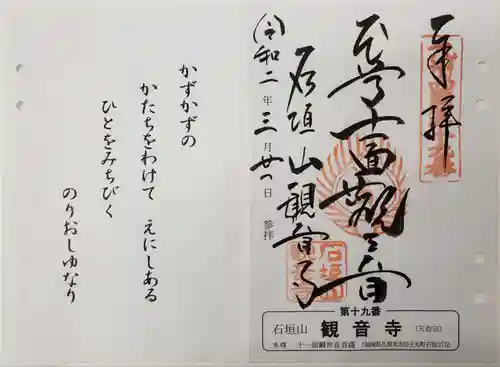 奉拝
十一面観世音
石垣山観音寺
令和二年三月廿一日 参拝
かずかずの
かたちをわけて えにしある
ひとをみちびく
のりおしゆなり
第十九番
石垣山 観音寺 (天台宗)
本尊 十一面観世音菩薩